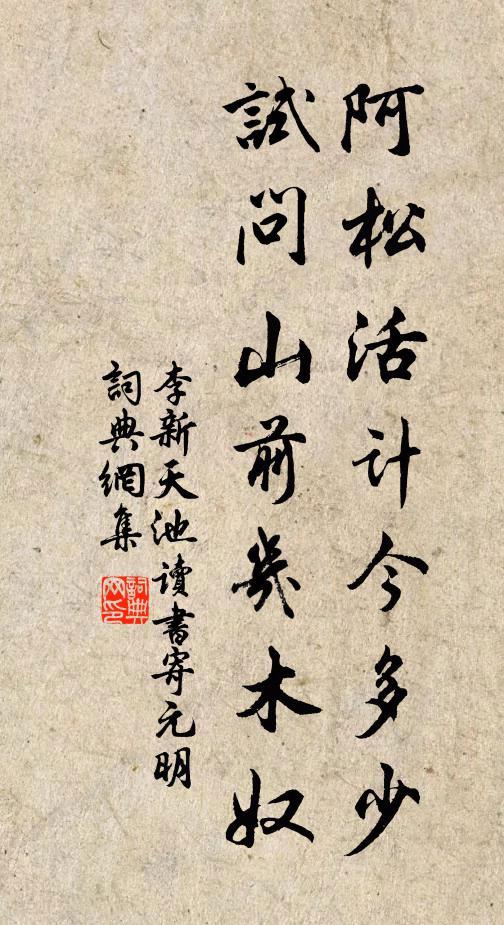 阿松活計今多少
試問山前幾木奴
李新天池讀書寄元明
詞典網集
詞典
网印